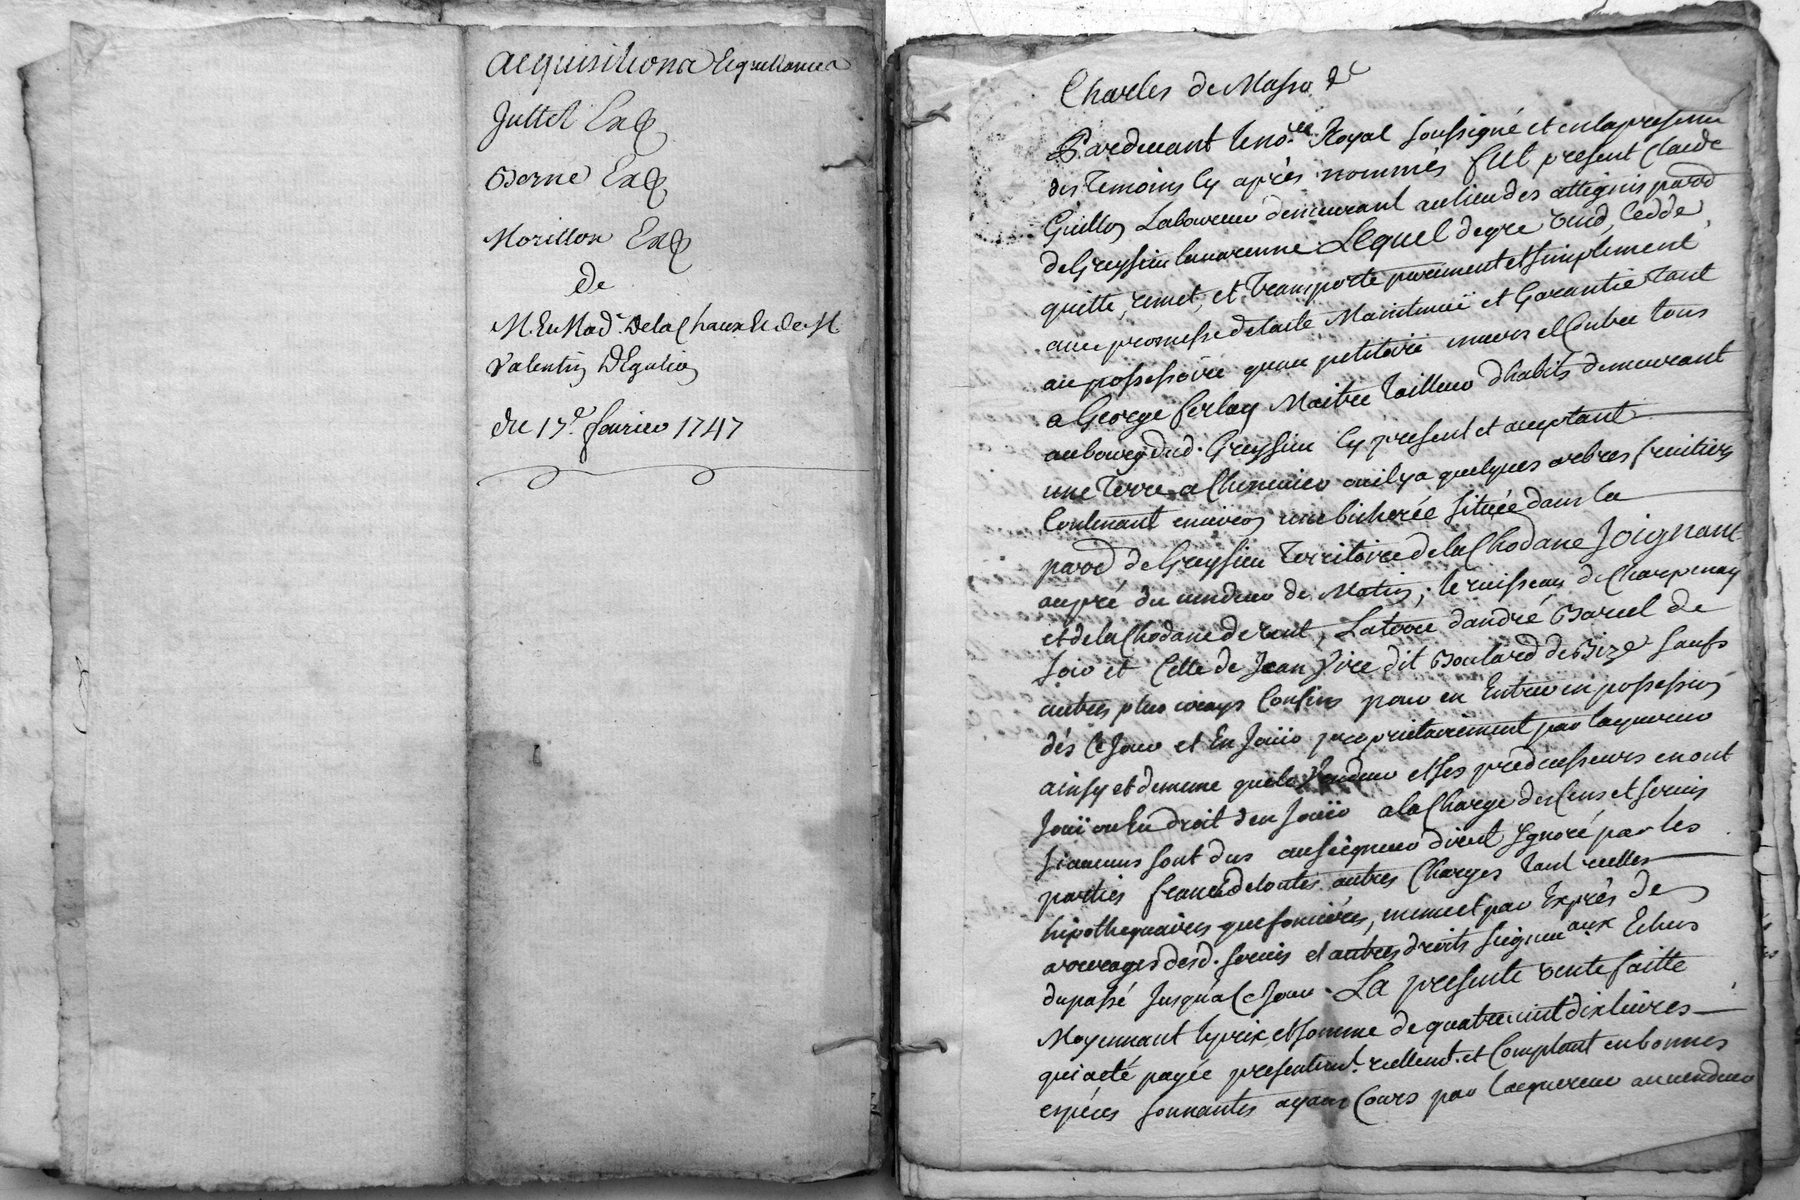 acquisitions et quittances
Juttet Exp
Berne Exp
Morillon Exp
de
M. Et Mad.e De la Chaux Et de M.
Valentin D'Egulion
du 17e. fevrier 1747
Charles de Masso &c
Pardevant le no.re Royal soussigné et en la presence
des temoins cy après nommés fut present Claude
Guillon Laboureur demeurant au lieu des attignis parr.
de Greysieu la varenne Lequel de gre vend, cedde,
quitte, remet, et transporte purement et simplement
avec promesse de toute Maintenüe et Garantie tant
au possessoire qu'au petitoire envers et Contre tous
a George ferlay Maitre tailleur d'habits demeurant
au bourg dud. Greysieu Cy present et acceptant
une terre a Chenevier ou il y a quelques arbres fruitiers
Contenant environ une bicherée située dans la
parr. de Greysieu territoire de la Chodane Joignant
au pré du vendeur de Matin, le ruisseau de Charpenay
et de la Chodane de vent, La terre d'andré Barcel de
soir et Celle de Jean Vire dit Boulard de Bize saufs
autres plus vrays Confins pour en Entrer en possession
dés Ce Jour et En Joüir proprietairement par l'acquereur
ainsy et de meme que le Vendeur et ses predecesseurs en ont
Joüi ou Eu droit d'en Joüir a la Charge des Cens et servis
si aucuns sont dus au seigneur direct Ignoré par les
parties franche de toutes autres Charges tant reelles
hipothequaires que foncières, meme et par Exprés de
arrerages desd. servis et autres droits seigneuriaux Echus
du passé Jusqu'a Ce Jour. La presente vente faitte
Moyennant le prix et somme de quatre vint dix livres
qui a eté payée presentem.t réellem.t et Comptant en bonnes
espéces sonnantes ayant Cours par l'acquereur au vendeur